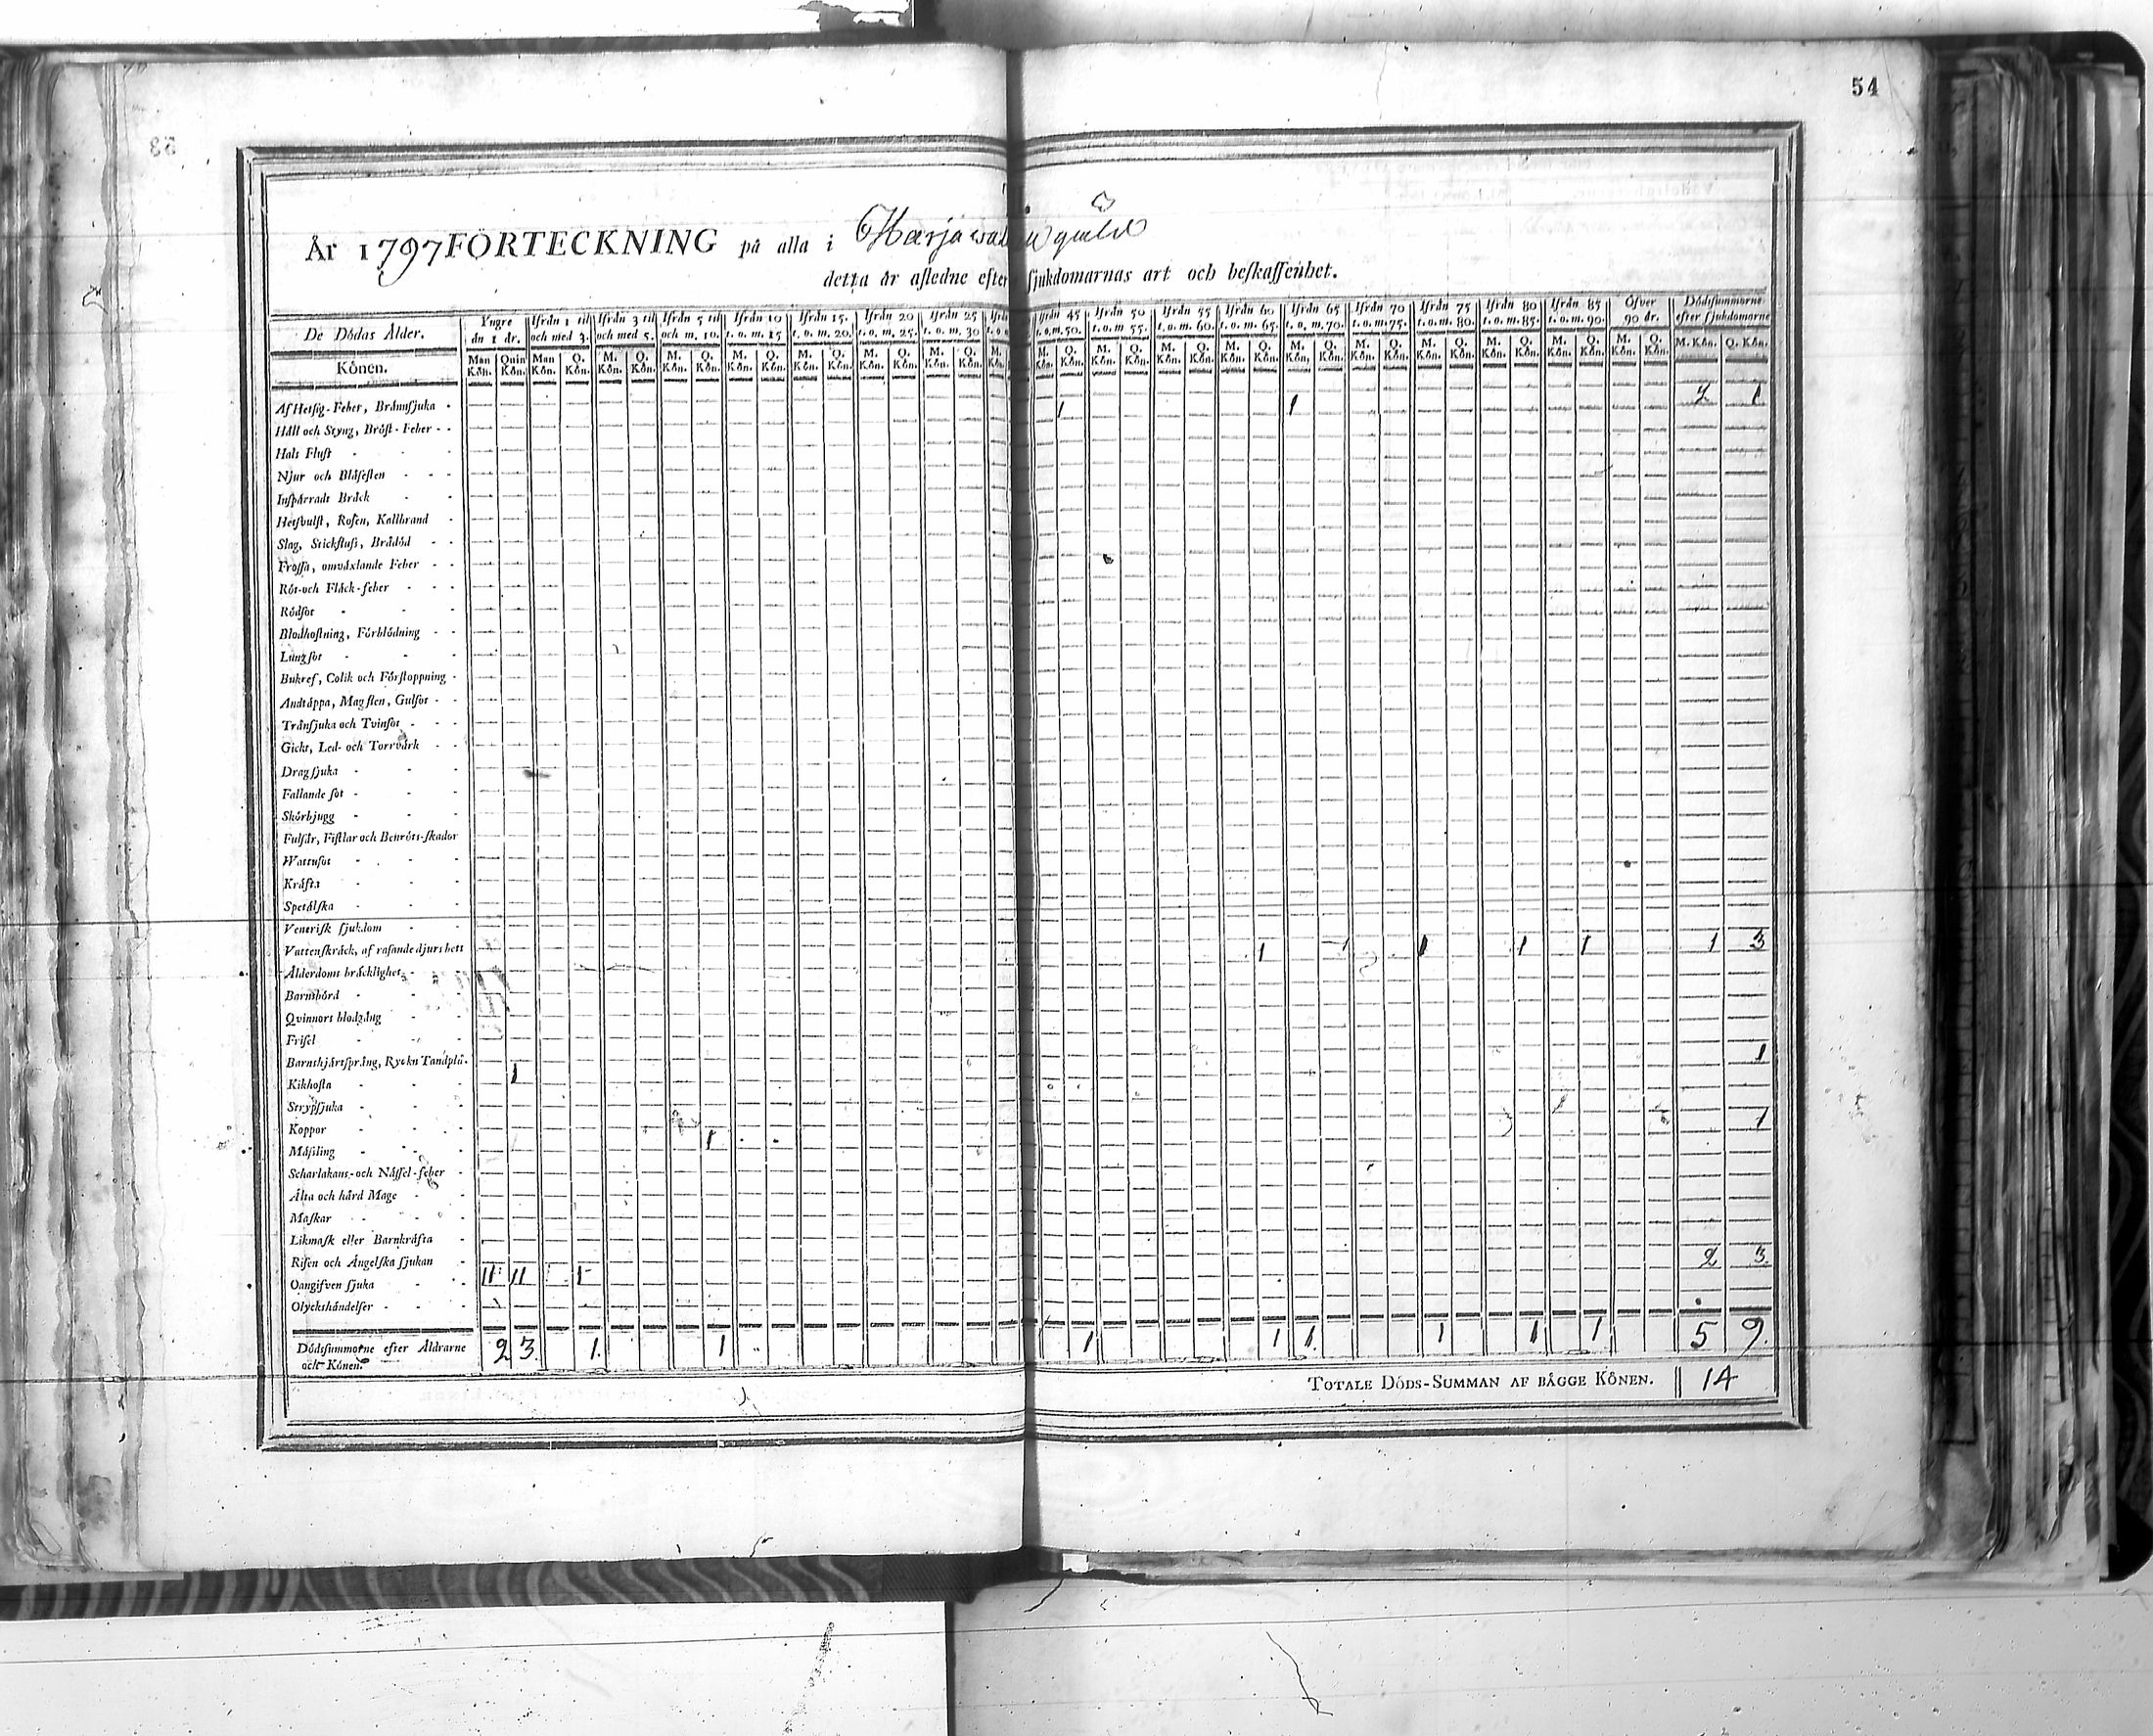 54
År 1797 FÖRTECKNING på alla i
detta år afledne efter sjukdomarnas art och beskaffenhet.
De Dödas Ålder. Yngre än 1 år. Ifrån 1 til och med 3. Ifrån 3 til och med 5. Ifrån 5 til och m. 10. Ifrån 10 t. o. m. 15 Ifrån 15. t. o. m. 20. Ifrån 20 t. o. m. 25. Ifrån 25 t. o. m. 30 Ifrån 45 t. o. m. 50. Ifrån 50 t. o. m 55. Ifrån 55 t. o. m. 60. Ifrån 60 t. o. m. 65. Ifrån 65 t. o. m. 70. Ifrån 70 t. o. m. 75. Ifrån 75 t. o. m. 80. Ifrån 80 t. o. m. 85. Ifrån 85 t. o. m. 90. Öfver 90 år. Dödssummorne efter sjukdomarne
Könen. Man Kön. Quin Kön. Man Kön. Q. Kön. M. Kön. Q. Kön. M. Kön. Q. Kön. M. Kön. Q. Kön. M. Kön. Q. Kön. M. Kön. Q. Kön. M. Kön. Q. Kön. M. Kön. M. Kön. Q. Kön. M. Kön. Q. Kön. M. Kön. Q. Kön. M. Kön. Q. Kön. M. Kön. Q. Kön. M. Kön. Q. Kön. M. Kön. Q. Kön. M. Kön. Q. Kön. M. Kön. Q. Kön. M. Kön. Q. Kön. M. Kön. Q. Kön.
Af Hetsig-Feber, Brännsjuka 1 1 2 1
Håll och Styng, Bröst-Feber
Hals Flust
Njur och Blåsesten
Inspärradt Bråck
Hetsvulst, Rosen, Kallbrand
Slag, Stickfluss, Brådöd
Frossa, omväxlande Feber
Röt-och Fläck-feber
Rödsot
Blodhostning, Förblödning
Lungsot
Bukref, Colik och Förstoppning
Andtäppa, Magsten, Gulsot
Trånsjuka och Tvinsot
Gickt, Led- och Torrvärk
Dragsjuka
Fallande sot
Skörbjugg
Fulsår, Fistlar och Benröts-skador
Wattusot
Kräfta
Spetälska
Venerisk sjukdom
Vattenskräck, af rasande djurs bett
Ålderdoms bräcklighet 1 1 1 1 1 3
Barnsbörd
Qvinnors blodgång
Frisel
Barnshjärtsprång, Ryck n Tandplå. 1
Kikhosta 1
Strypsjuka
Koppor 1 1
Mässling
Scharlakans-och Nässel-feber
Älta och hård Mage
Maskar
Likmask eller Barnkräfta
Risen och Ängelska sjukan 2 3.
Oangifven sjuka 11 11 1
Olyckshändelser
Dödssummorne efter Åldrarne och Könen. 2 3. 1. 1 1 1 1. 1 1 1 5 9.
TOTALE DÖDS-SUMMAN AF BÅGGE KÖNEN. 14